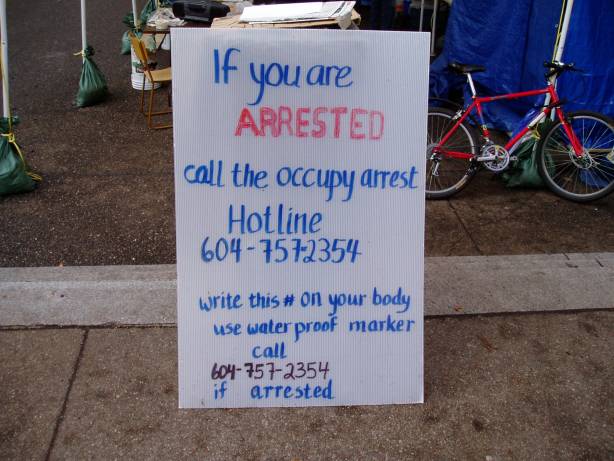 If you are
ARRESTED
call the occupy arrest
Hotline
604-757-2354
write this # on your body
use water proof marker
call
604-757-2354
if arrested